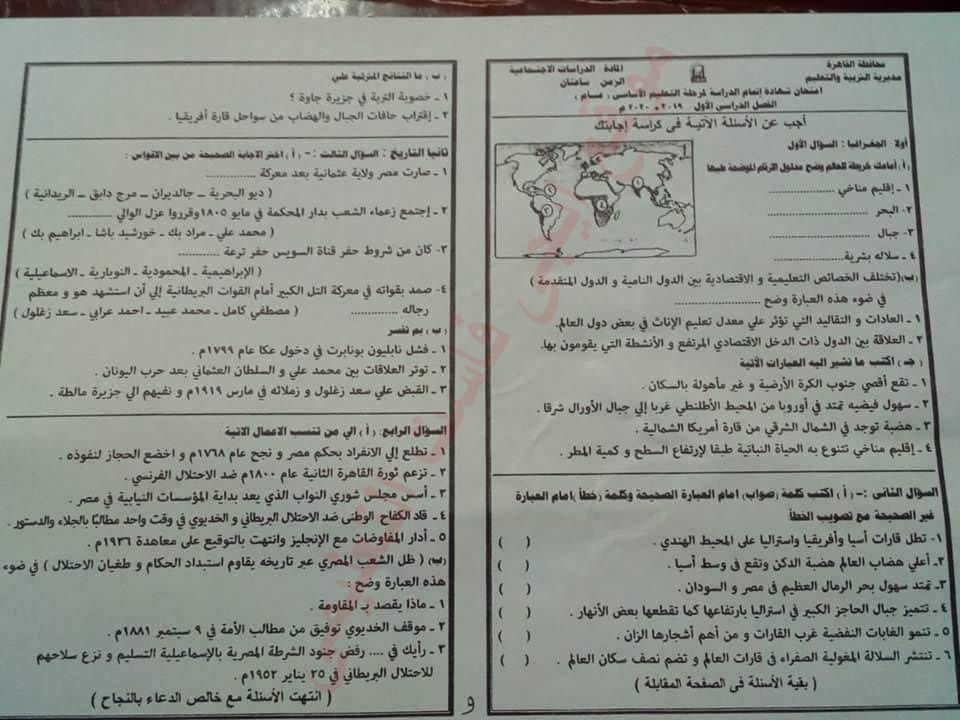 محافظة القاهرة
مديرية التربية والتعليم
المادة الدراسات الاجتماعية
الزمن ساعتان
امتحان شهادة إتمام الدراسة لمرحلة التعليم الأساسى ( عام )
الفصل الدراسى الأول ٢٠١٩ - ٢٠٢٠ م
أجب عن الأسئلة الآتية فى كراسة إجابتك
اولا الجغرافيا : السؤال الأول
( أ ) أمامك خريطة للعالم وضح مدلول الارقام الموضحة عليها
١ - إقليم مناخي ..................
٢- البحر ..................
٣- جبال ..................
٤ - سلاله بشرية..................
(ب)(تختلف الخصائص التعليمية و الاقتصادية بين الدول النامية و الدول المتقدمة )
في ضوء هذه العبارة وضح ..................
١ - العادات و التقاليد التي تؤثر علي معدل تعليم الإناث في بعض دول العالم.
٢ - العلاقة بين الدول ذات الدخل الاقتصادي المرتفع و الأنشطة التي يقومون بها.
(جـ) اكتب ما تشير اليه العبارات الآتية
١ - تقع أقصي جنوب الكرة الأرضية و غير مأهولة بالسكان .
٢ - سهول فيضيه تمتد في أوروبا من المحيط الأطلنطي غربا إلي جبال الأورال شرقا .
٣ - هضبة توجد في الشمال الشرقي من قارة أمريكا الشمالية .
٤ - إقليم مناخي تتنوع به الحياة النباتية طبقا لإرتفاع السطح و كمية المطر .
السؤال الثانى :- ( أ ) اكتب كلمة (صواب) امام العبارة الصحيحة وكلمة (خطأ) امام العبارة
غير الصحيحة مع تصويب الخطأ
١- تطل قارات آسيا وأفريقيا واستراليا على المحيط الهندي . ( )
٢- أعلي هضاب العالم هضبة الدكن وتقع فى وسط آسيا . ( )
٣- تمتد سهول بحر الرمال العظيم فى مصر و السودان . ( )
٤ - تتميز جبال الحاجز الكبير في استراليا بارتفاعها كما تقطعها بعض الأنهار . ( )
٥ - تنمو الغابات النفضية غرب القارات و من أهم أشجارها الزان . ( )
٦ - تنتشر السلالة المغولية الصفراء فى قارات العالم و تضم نصف سكان العالم . ( )
( بقية الأسئلة فى الصفحة المقابلة )
( ب ) ما النتائج المترتبة علي
١ - خصوبة التربة في جزيرة جاوة ؟
٢ - إقتراب حافات الجبال والهضاب من سواحل قارة أفريقيا .
ثانيا التاريخ : السؤال الثالث :- ( أ ) اختر الاجابة الصحيحة من بين الاقواس :
١ - صارت مصر ولاية عثمانية بعد معركة ..................
( ديو البحرية – جالديران – مرج دابق – الريدانية )
٢ - إجتمع زعماء الشعب بدار المحكمة في مايو ١٨٠٥ وقرروا عزل الوالي ..................
( محمد علي - مراد بك - خورشيد باشا - ابراهيم بك )
٣- كان من شروط حفر قناة السويس حفر ترعة ..................
( الإبراهيمية - المحمودية - النوبارية - الاسماعيلية )
٤- صمد بقواته في معركة التل الكبير أمام القوات البريطانية إلي أن استشهد هو و معظم
رجاله .................. ( مصطفي كامل - محمد عبيد - احمد عرابي - سعد زغلول )
( ب ) بم تفسر
١ - فشل نابليون بونابرت في دخول عكا عام ١٧٩٩م .
٢ - توتر العلاقات بين محمد علي و السلطان العثماني بعد حرب اليونان .
٣ - القبض علي سعد زغلول و زملائه في مارس ١٩١٩م و نفيهم الي جزيرة مالطة .
السؤال الرابع : ( أ ) الي من تنتسب الاعمال الاتية
١ - تطلع إلي الانفراد بحكم مصر و نجح عام ١٧٦٨م و اخضع الحجاز لنفوذه .
٢ - تزعم ثورة القاهرة الثانية عام ١٨٠٠م ضد الاحتلال الفرنسي .
٣ - أسس مجلس شوري النواب الذي يعد بداية المؤسسات النيابية في مصر .
٤ - قاد الكفاح الوطنى ضد الاحتلال البريطاني و الخديوي في وقت واحد مطالبًا بالجلاء والدستور .
٥ - أدار المفاوضات مع الإنجليز وانتهت بالتوقيع على معاهدة ١٩٣٦م .
(ب) ( ظل الشعب المصري عبر تاريخه يقاوم استبداد الحكام و طغيان الاحتلال ) في ضوء
هذه العبارة وضح :
١ - ماذا يقصد بـ المقاومة .
٢ - موقف الخديوي توفيق من مطالب الأمة في ٩ سبتمبر ١٨٨١م .
٣ - رأيك في .... رفض جنود الشرطة المصرية بالإسماعيلية التسليم و نزع سلاحهم
للاحتلال البريطاني في ٢٥ يناير ١٩٥٢م .
( انتهت الأسئلة مع خالص الدعاء بالنجاح )